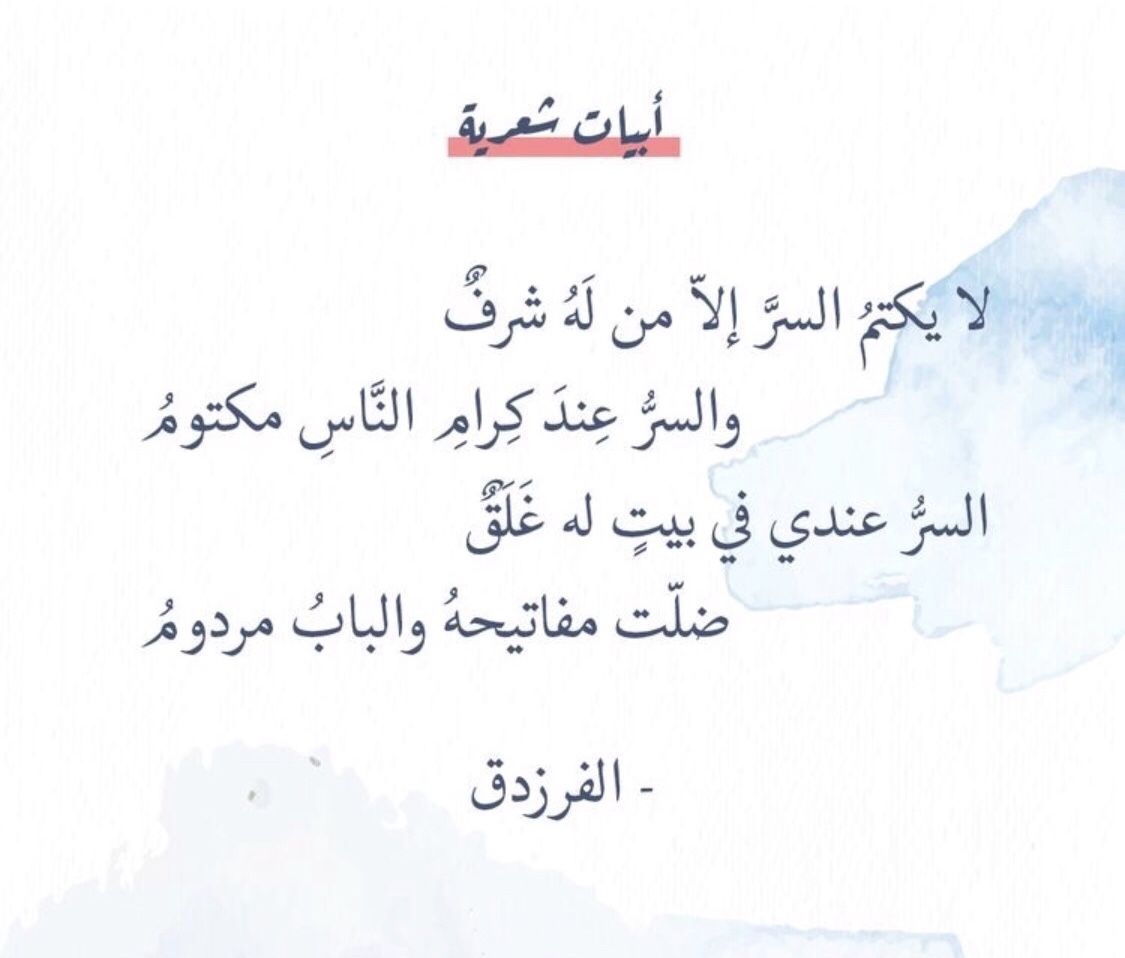 أبيات شعرية
لا يكتمُ السرَّ إلاّ من لَهُ شرفٌ
والسرُّ عِندَ كِرامِ النَّاسِ مكتومُ
السرُّ عندي في بيتٍ له غَلَقٌ
ضلّت مفاتيحهُ والبابُ مردومُ
- الفرزدق